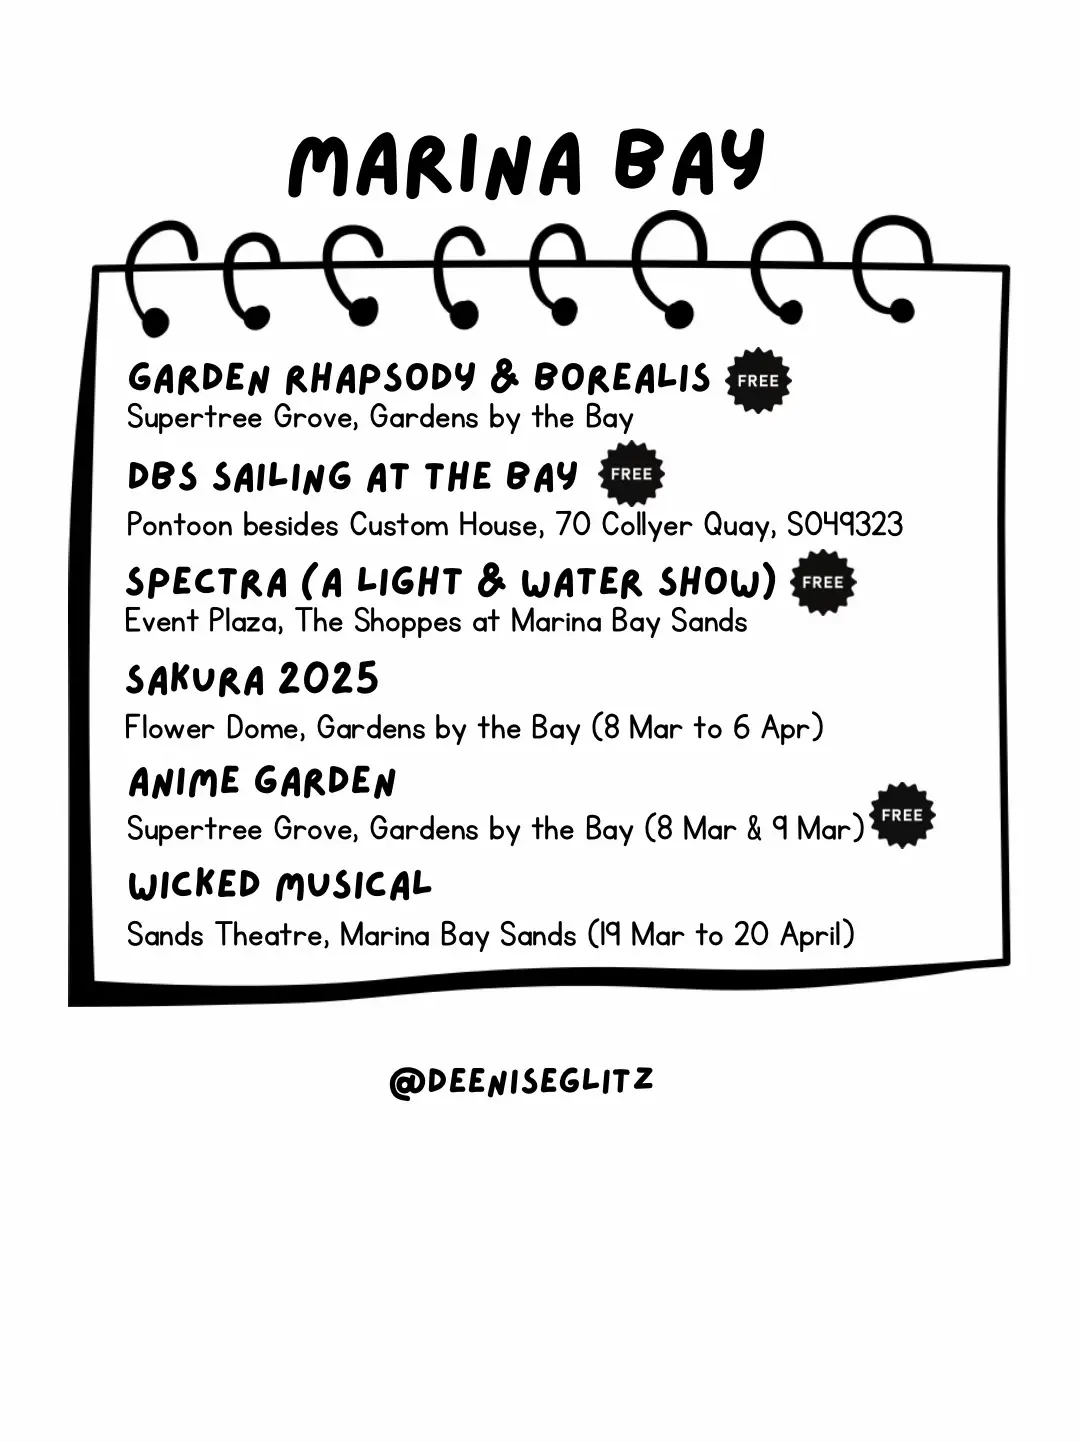 MARINA BAY
GARDEN RHAPSODY & BOREALIS FREE
Supertree Grove, Gardens by the Bay
DBS SAILING AT THE BAY FREE
Pontoon besides Custom House, 70 Collyer Quay, S049323
SPECTRA (A LIGHT & WATER SHOW) FREE
Event Plaza, The Shoppes at Marina Bay Sands
SAKURA 2025
Flower Dome, Gardens by the Bay (8 Mar to 6 Apr)
ANIME GARDEN
Supertree Grove, Gardens by the Bay (8 Mar & 9 Mar) FREE
WICKED MUSICAL
Sands Theatre, Marina Bay Sands (19 Mar to 20 April)
@DEENISEGLITZ